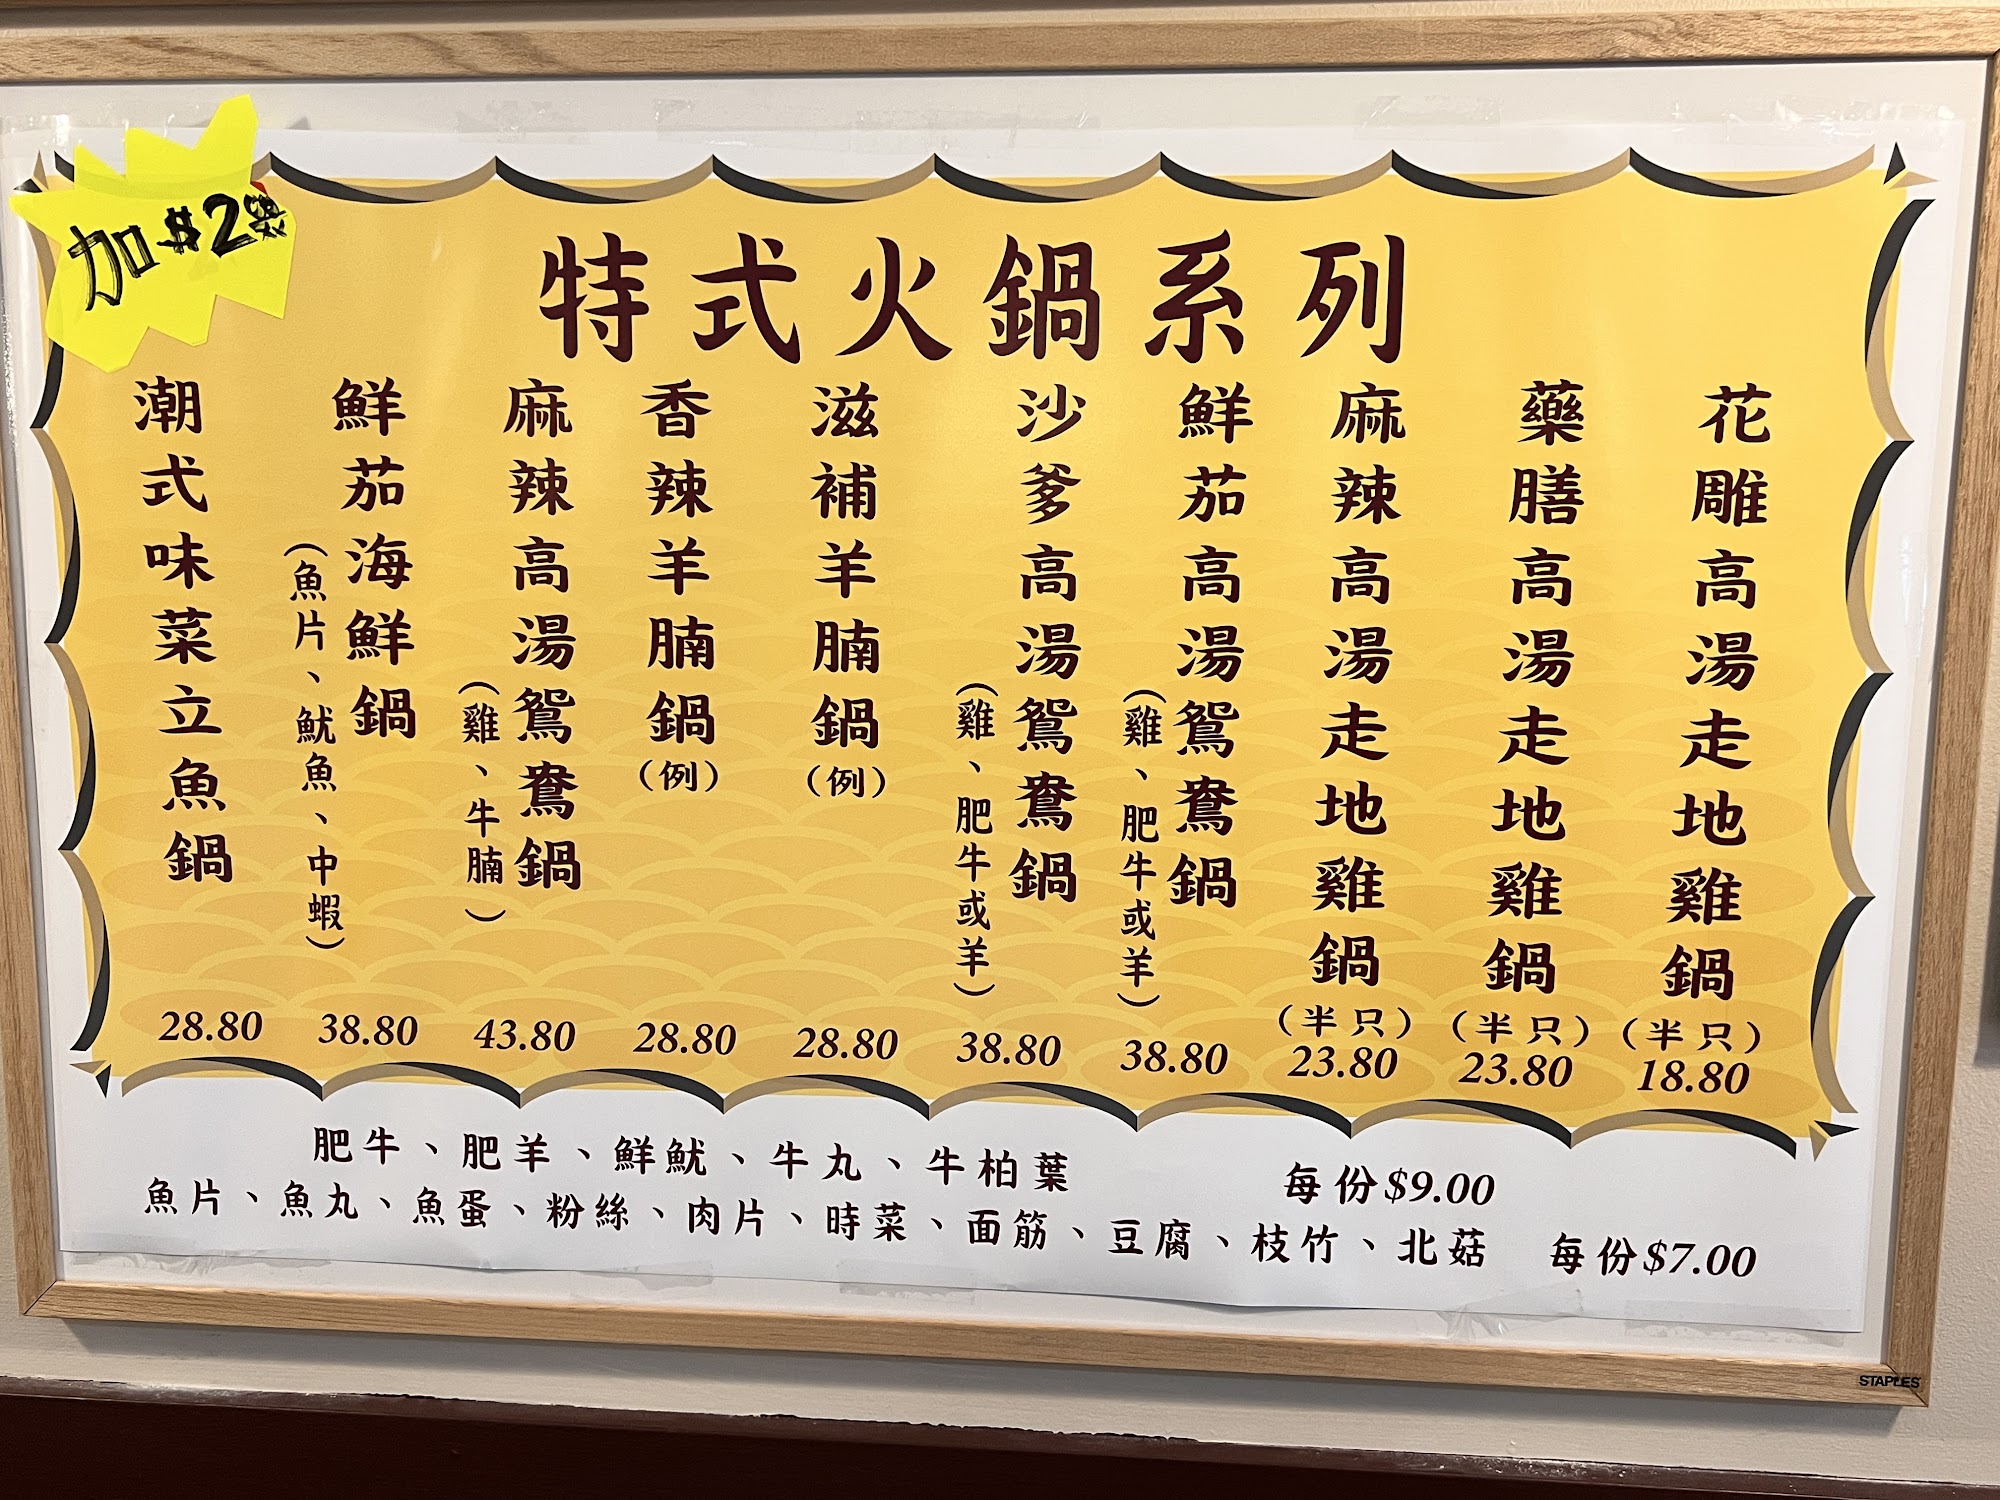 加$2
特式火鍋系列
花雕高湯走地雞鍋(半只)
18.80
藥膳高湯走地雞鍋(半只)
23.80
麻辣高湯走地雞鍋(半只)
23.80
鮮茄高湯鴛鴦鍋
(雞、肥牛或羊)
38.80
沙爹高湯鴛鴦鍋
(雞、肥牛或羊)
38.80
滋補羊腩鍋(例)
28.80
香辣羊腩鍋(例)
28.80
麻辣高湯鴛鴦鍋
(雞、牛腩)
43.80
鮮茄海鮮鍋
(魚片、魷魚、中蝦)
38.80
潮式味菜立魚鍋
28.80
肥牛、肥羊、鮮魷、牛丸、牛柏葉 每份$9.00
魚片、魚丸、魚蛋、粉絲、肉片、時菜、面筋、豆腐、枝竹、北菇 每份$7.00
STAPLES